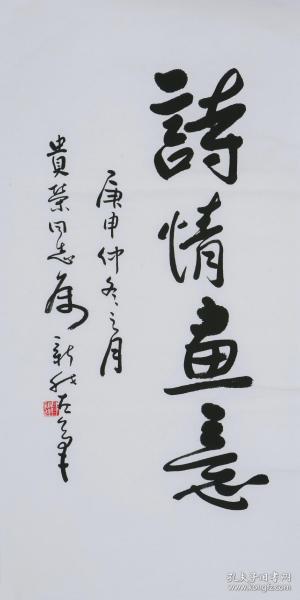 詩情畫意
庚申仲冬之月
貴榮同志属
新我左筆
孔夫子旧书网